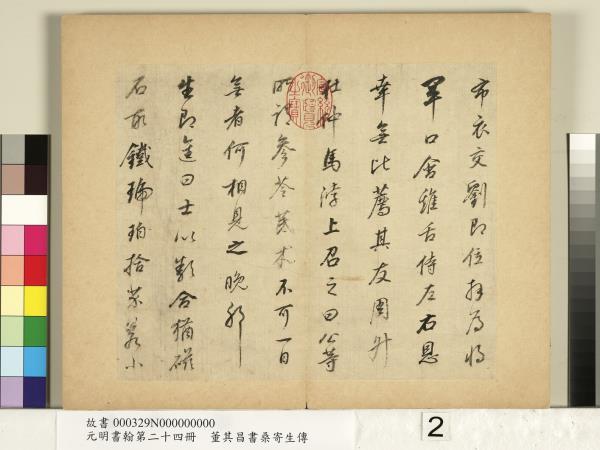 布衣交劉即位拜為將
軍口含雞舌侍左右恩
幸無比薦其友周升
杜仲馬浡上召之曰公等
所謂參苓芪朮不可一日
無者何相見之晚耶
生即進曰士以類合猶磁
石取鐵琥珀拾芥若小
故書 000329N000000000
元明書翰第二十四冊 董其昌書桑寄生傳
2